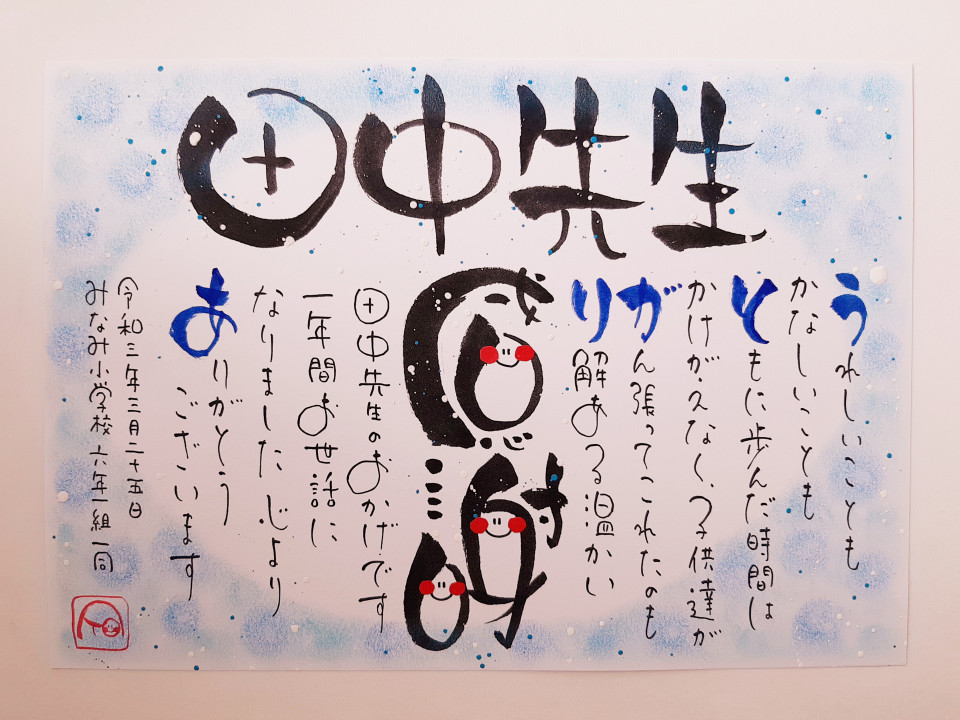 田中先生
うれしいことも
かなしいことも
ともに歩んだ時間は
かけがえなく、子供達が
がん張ってこれたのも
り解ある温かい
感謝
田中先生のおかげです
一年間お世話に
なりました心より
ありがとう
ございます
令和三年三月二十五日
みなみ小学校 六年一組一同